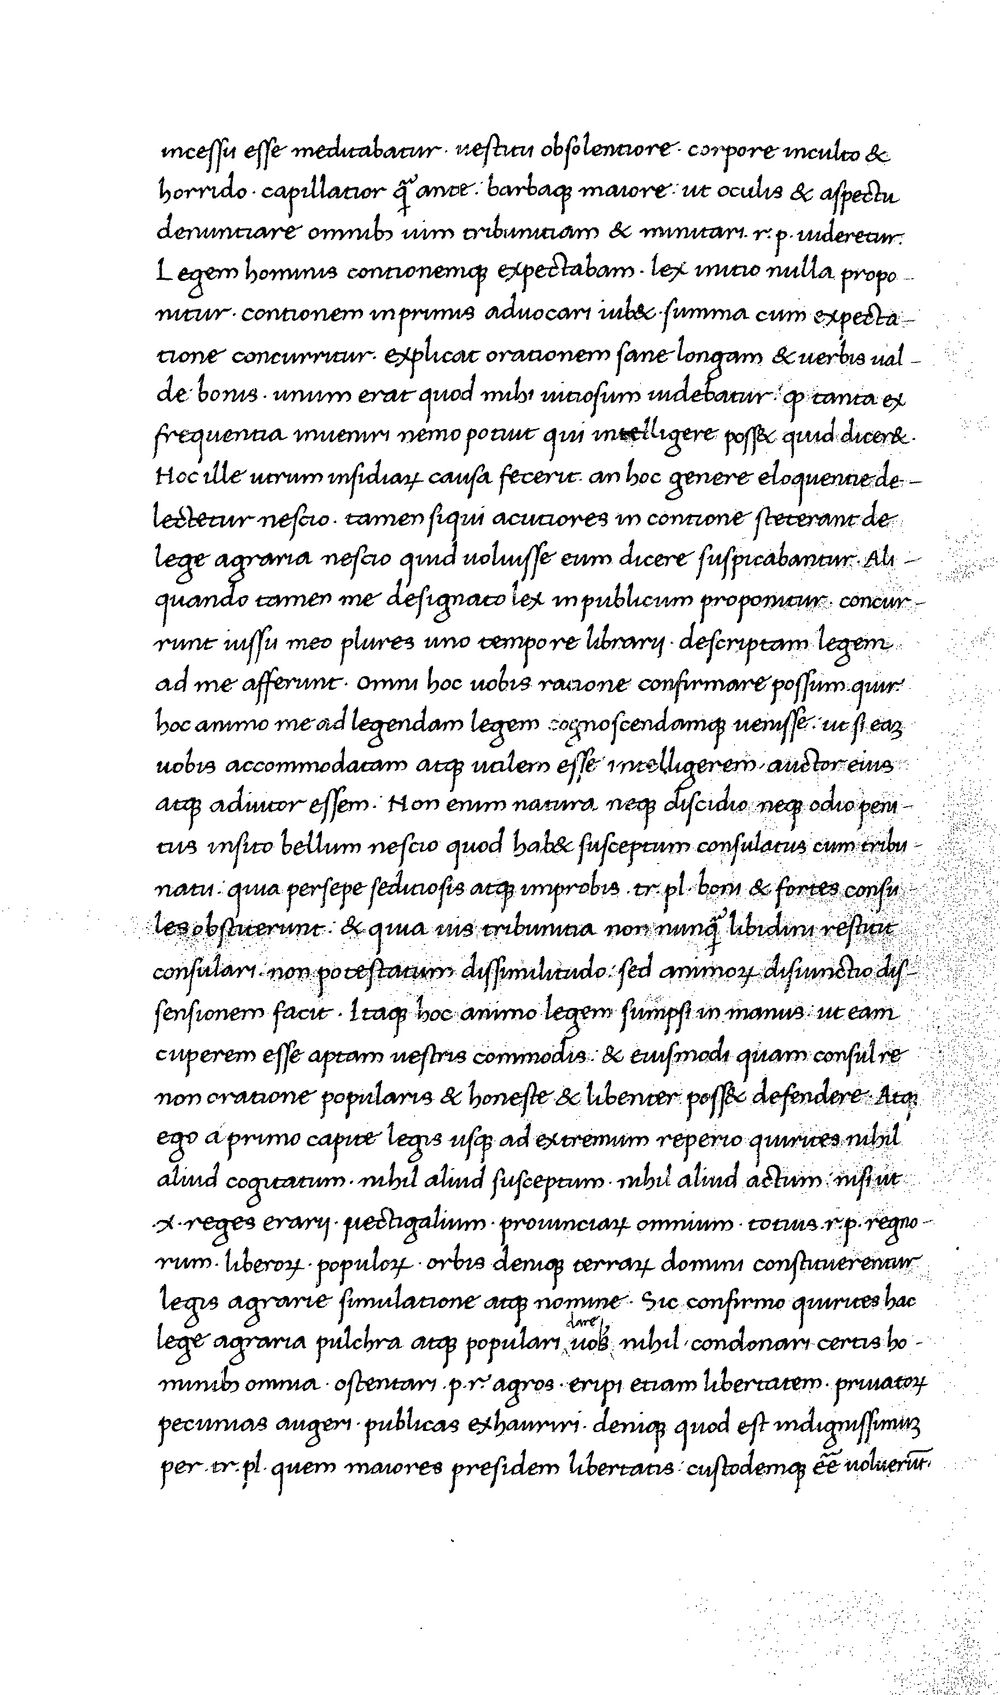 incessu esse meditabatur · uestitu obsolentiore · corpore inculto &
horrido · capillatior q̃ ante : barbaqꝫ maiore : ut oculis & aspectu
denuntiare omnibꝫ uim tribunitiam & minitari. r. p. uideretur.
Legem hominis contionemqꝫ expectabam · lex initio nulla propo-
nitur · contionem inprimis aduocari iub& · summa cum expecta-
tione concurritur. explicat orationem sane longam & uerbis ual-
de bonis · unum erat quod mihi uitiosum uidebatur : ꝙ tanta ex
frequentia inueniri nemo potiut qui intelligere poss& quid dicer& ·
Hoc ille utrum insidiaꝝ causa fecerit. an hoc genere eloquentie de-
lectetur nescio. tamen siqui acutiores in contione steterant de
lege agraria nescio quid uoluisse eum dicere suspicabantur. Ali-
quando tamen me designato lex inpublicum proponitur · concur-
runt iussu meo plures uno tempore librarij · descriptam legem
ad me afferunt · omni hoc uobis ratione confirmare possum. quir.
hoc animo me ad legendam legem cognoscendamqꝫ uenisse : ut si eaꝫ
uobis accommodatam atqꝫ utilem esse intelligerem · auctor eius
atqꝫ adiutor essem. Non enim natura neqꝫ discidio neqꝫ odio peni-
tus insito bellum nescio quod hab& susceptum consulatus cum tribu-
natu : quia persepe seditiosis atqꝫ improbis. tr. pl. boni & fortes consu
les obstiterunt : & quia uis tribunitia non nunq̃ libidini restitit
consulari. non potestatum dissimilitudo : sed animoꝝ disiunctio dis-
sensionem facit · Itaqꝫ hoc animo legem sumpsi in manus : ut eam
cuperem esse aptam uestris commodis : & eiusmodi quam consul re
non oratione popularis & honeste & libenter poss& defendere · Atqꝫ
ego a primo capite legis usqꝫ ad extremum reperio quirites nihil
aliud cogitatum · nihil aliud susceptum · nihil aliud actum : nisi ut
·x· reges erarij · uectigalium · prouinciaꝝ omnium · totius. r. p. regno-
rum · liberoꝝ · populoꝝ · orbis deniqꝫ terraꝝ domini constituerentur
legis agrarie simulatione atqꝫ nomine · Sic confirmo quirites hac
dare
lege agraria pulchra atqꝫ populari uob. nihil · condonari certis ho-
minibꝫ omnia · ostentari. p. r. agros · eripi etiam libertatem · priuatoꝝ
pecunias augeri · publicas exhauriri · deniqꝫ quod est indignissimuꝫ
per. tr. pl. quem maiores presidem libertatis : custodemqꝫ eẽ uoluerũt.